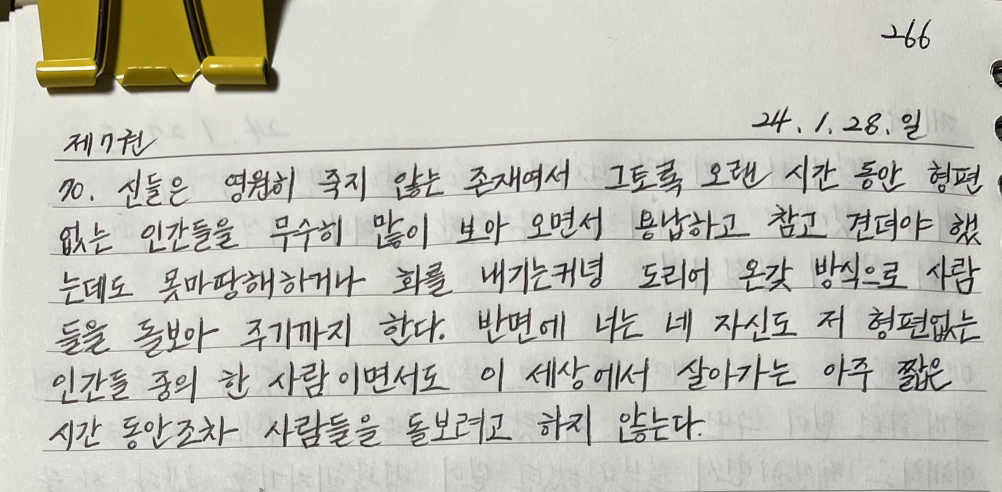 266
제7권 24.1.28.일
70. 신들은 영원히 죽지 않는 존재여서 그토록 오랜 시간 동안 형편
없는 인간들을 무수히 많이 보아 오면서 용납하고 참고 견뎌야 했
는데도 못마땅해하거나 화를 내기는커녕 도리어 온갖 방식으로 사람
들을 돌보아 주기까지 한다. 반면에 너는 네 자신도 저 형편없는
인간들 중의 한 사람이면서도 이 세상에서 살아가는 아주 짧은
시간 동안조차 사람들을 돌보려고 하지 않는다.